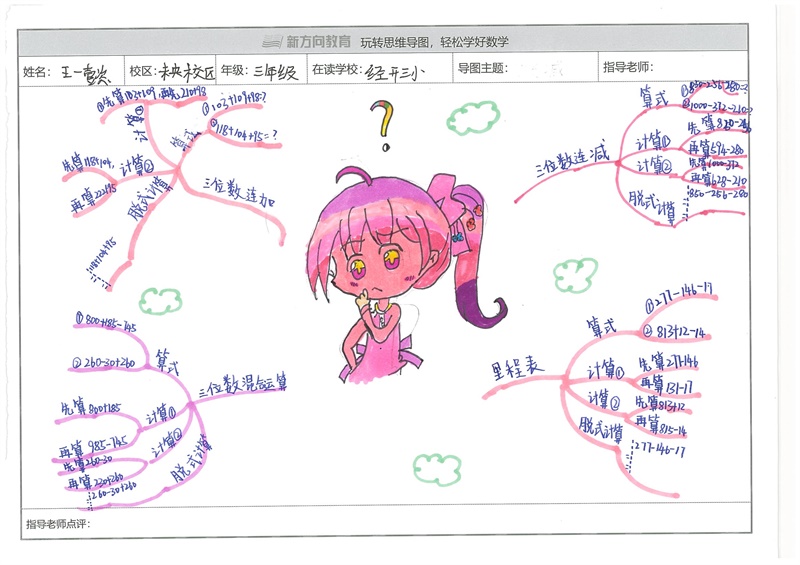 新方向教育 玩转思维导图，轻松学好数学
姓名： 王一 校区：未央校区 年级：三年级 在读学校：经开三小 导图主题： 指导老师：
三位数连加
算式
①103+109+98=?
②118+104+95=?
计算①
先算103+109,再
计算②
先算118+104,
再算222+95
脱式计算
118+104+95
三位数连减
算式
①850-256-280=?
②1000-372-210=?
计算①
再算594-280
计算②
先算1000-372
再算628-210
脱式计算
850-256-280
三位数混合运算
算式
①800+185-745
②260-30+260
计算①
先算800+185
再算985-745
计算②
先算260-30
再算230+260
脱式计算
260-30+260
里程表
算式
①277-146-17
②813+12-14
计算①
先算277-146
再算131-17
计算②
先算813+12
再算815-14
脱式计算
277-146-17
?
指导老师点评：